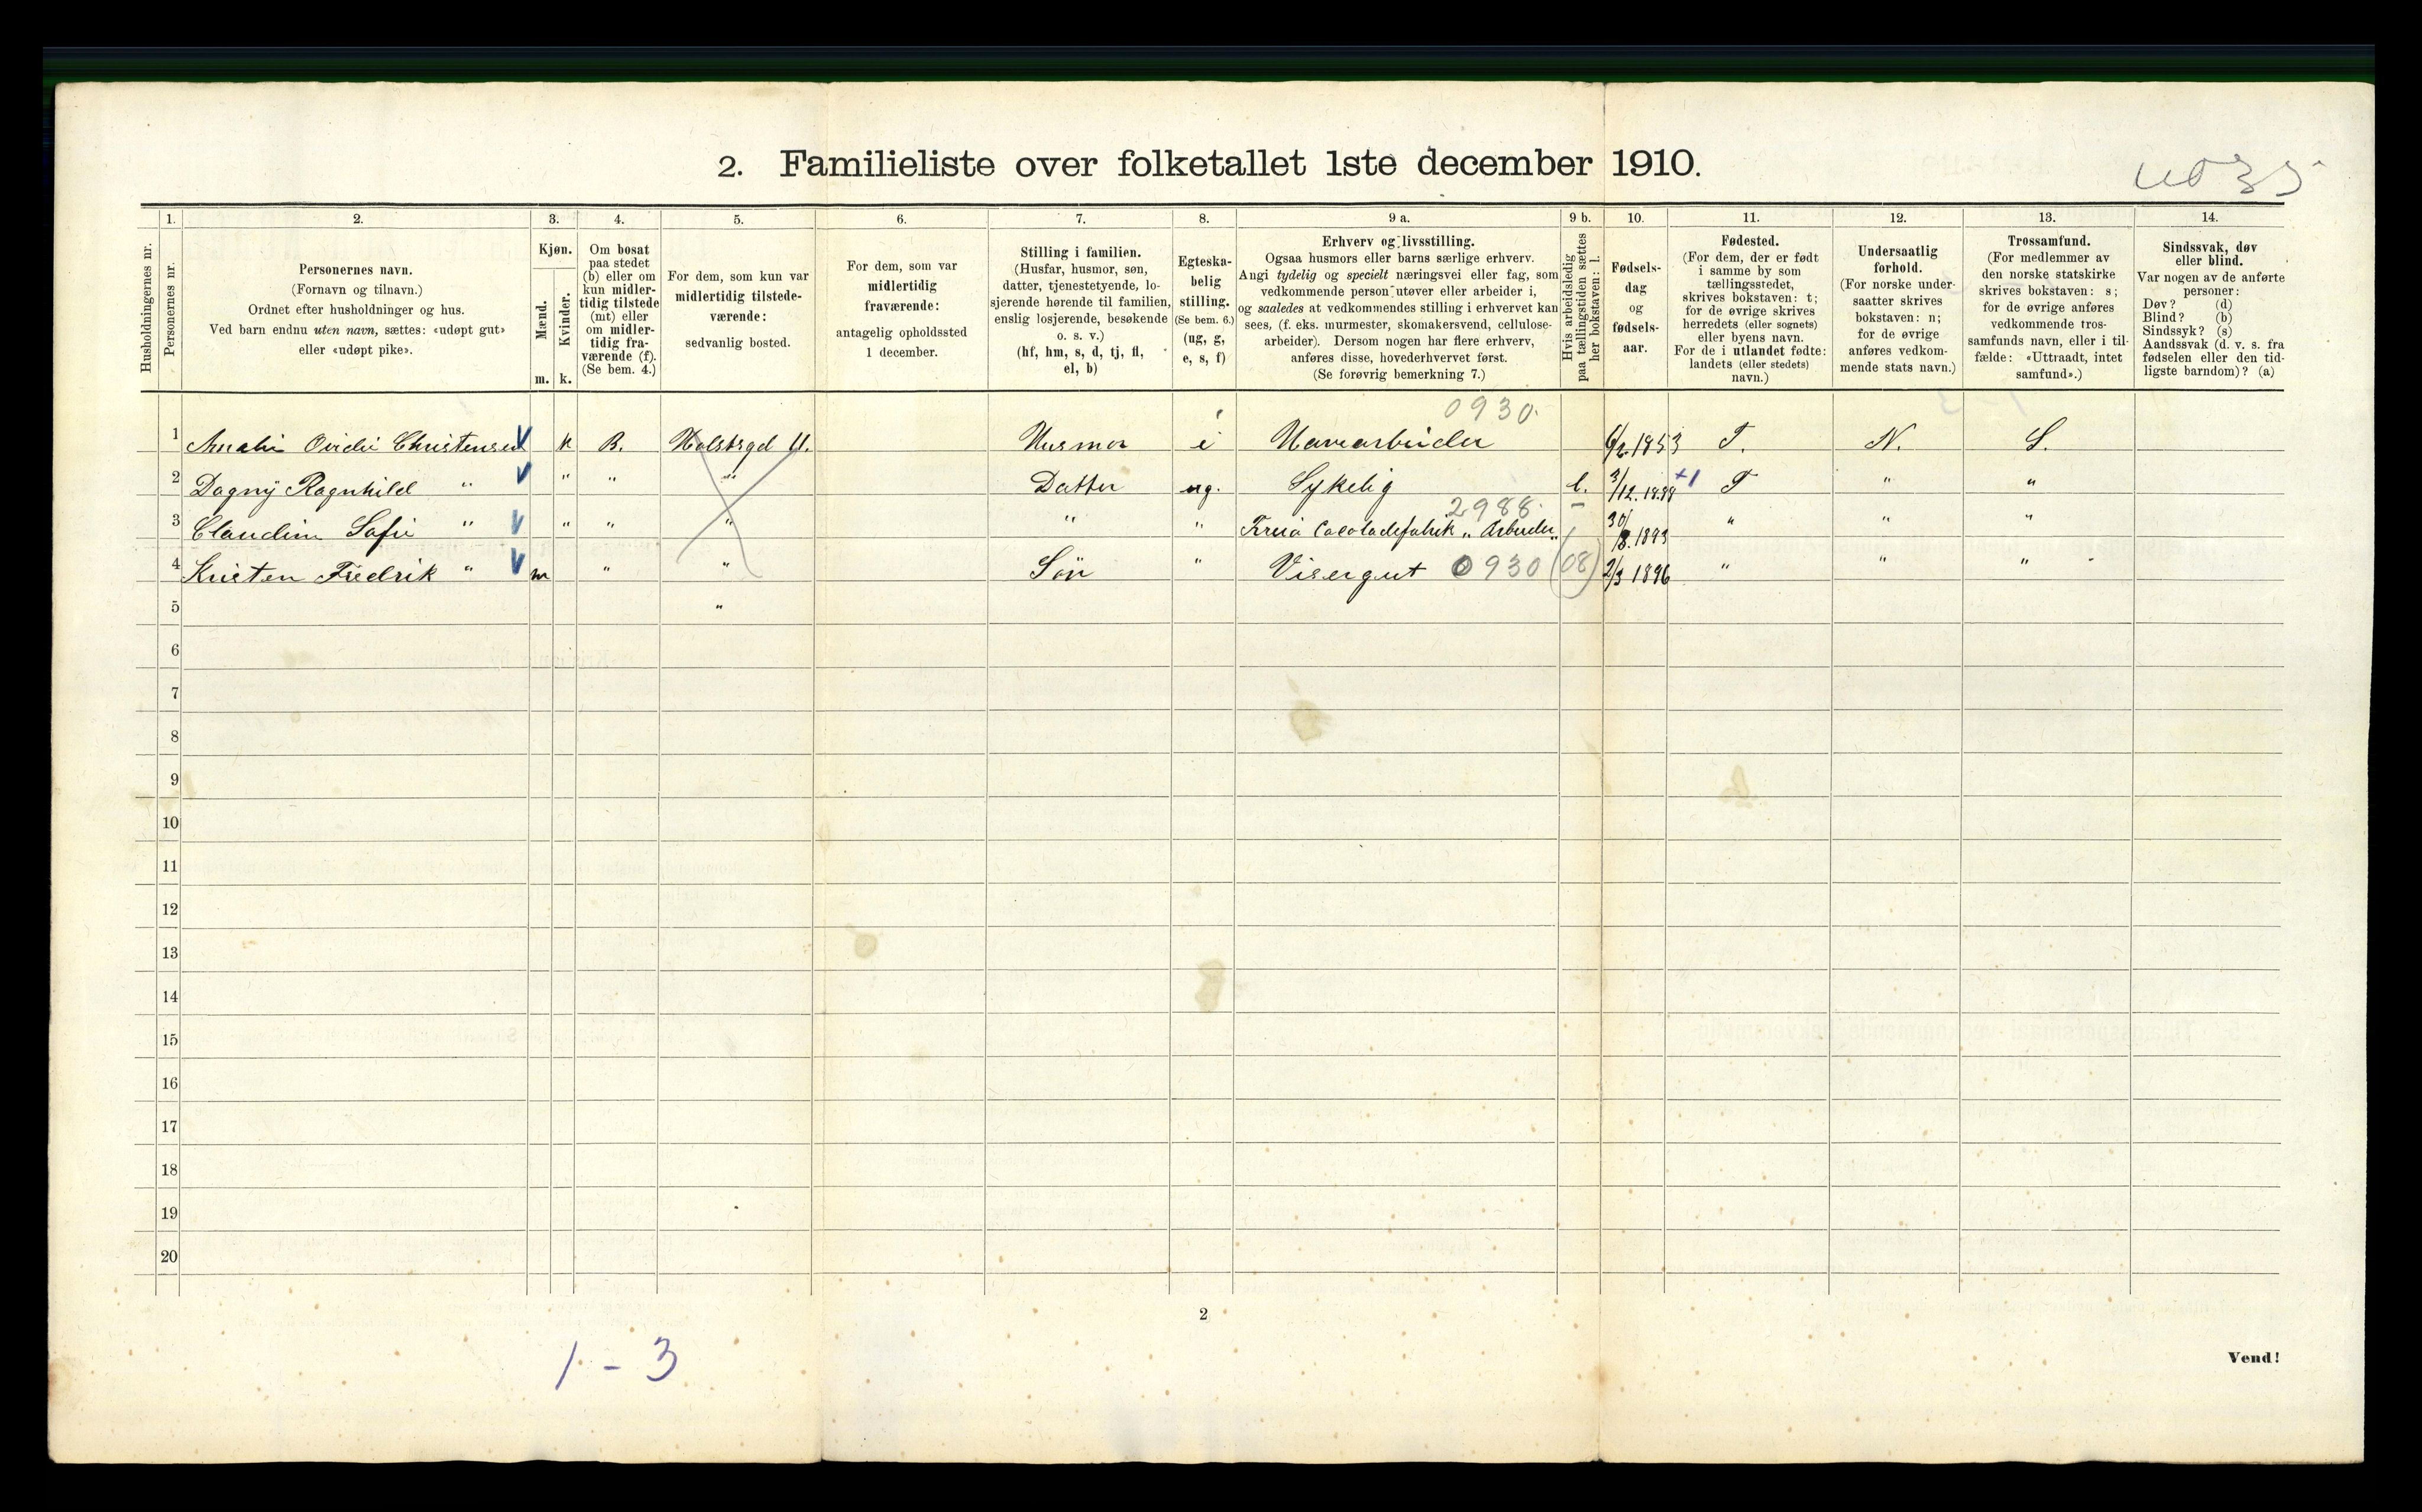 2. Familieliste over folketallet 1ste december 1910.
1. 2. 3. 4. 5. 6. 7. 8. 9 a. 9 b. 10. 11. 12. 13. 14.
Husholdningernes nr.
Personernes nr.
Personernes navn.
(Fornavn og tilnavn.)
Ordnet efter husholdninger og hus.
Ved barn endnu uten navn, sættes: «udøpt gut»
eller «udøpt pike».
Kjøn.
Mænd.
Kvinder.
m. k.
Om bosat
paa stedet
(b) eller om
kun midler-
tidig tilstede
(mt) eller
om midler-
tidig fra-
værende (f).
(Se bem. 4.)
For dem, som kun var
midlertidig tilstede-
værende:
sedvanlig bosted.
For dem, som var
midlertidig
fraværende:
antagelig opholdssted
1 december.
Stilling i familien.
(Husfar, husmor, søn,
datter, tjenestetyende, lo-
sjerende hørende til familien,
enslig losjerende, besøkende
o. s. v.)
(hf, hm, s, d, tj, fl,
el, b)
Egteska-
belig
stilling.
(Se bem. 6.)
(ug, g,
e, s, f)
Erhverv og livsstilling.
Ogsaa husmors eller barns særlige erhverv.
Angi tydelig og specielt næringsvei eller fag, som
vedkommende person utøver eller arbeider i,
og saaledes at vedkommendes stilling i erhvervet kan
sees, (f. eks. murmester, skomakersvend, cellulose-
arbeider). Dersom nogen har flere erhverv,
anføres disse, hovederhvervet først.
(Se forøvrig bemerkning 7.)
Hvis arbeidsledig
paa tællingstiden sættes
her bokstaven: l.
Fødsels-
dag
og
fødsels-
aar.
Fødested.
(For dem, der er født
i samme by som
tællingssredet,
skrives bokstaven: t;
for de øvrige skrives
herredets (eller sognets)
eller byens navn.
For de i utlandet fødte:
landets (eller stedets)
navn.)
Undersaatlig
forhold.
(For norske under-
saatter skrives
bokstaven: n;
for de øvrige
anføres vedkom-
mende stats navn.)
Trossamfund.
(For medlemmer av
den norske statskirke
skrives bokstaven: s;
for de øvrige anføres
vedkommende tros-
samfunds navn, eller i til-
fælde: «Uttraadt, intet
samfund».)
Sindssvak, døv
eller blind.
Var nogen av de anførte
personer:
Døv? (d)
Blind? (b)
Sindssyk? (s)
Aandssvak (d. v. s. fra
fødselen eller den tid-
ligste barndom)? (a)
0930.
1 Christensen k B. Husmor 1853 T. N. S.
2 Dagny Ragnhild " " " " Datter ug. Sykelig l. 3/12. +1 T " "
2988.
3 Claudine Sofie " " " " " " Freia " 30/8. 1893 " " "
4 Kristen Fredrik " m " " Søn " Visergut 0930 (08) 2/3 1896 " " "
5 "
6
7
8
9
10
11
12
13
14
15
16
17
18
19
20
2
1 - 3
Vend!